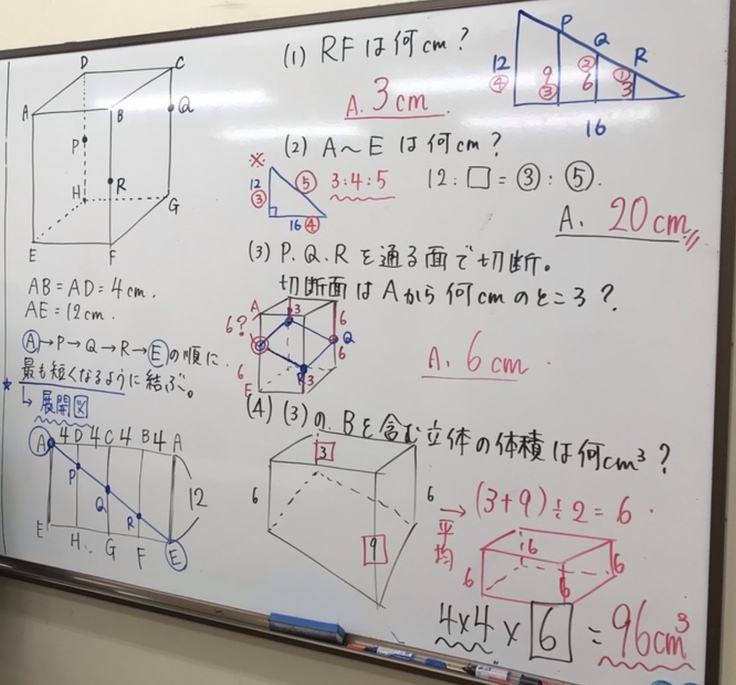 D
C
A
B
Q
P
R
H
G
E
F
AB=AD=4cm.
AE=12cm.
Ⓐ→P→Q→R→Ⓔの順に、
★最も短くなるように結ぶ。
↳展開図
A 4 D 4 C 4 B 4 A
P
Q
R
12
E H G F E
(1) RFは何cm?
A. 3cm
P
Q
R
12
④
9
③
②
6
①
3
16
(2) A~Eは何cm?
※
12
③
⑤
16④
3:4:5
12:□=③:⑤.
A. 20cm
(3) P.Q.Rを通る面で切断。
切断面はAから何cmのところ?
A
P
3
6
6?
Q
6
6
R
3
E
A. 6cm
(4) (3)の、Bを含む立体の体積は何cm³?
3
6
6
9
→(3+9)÷2=6.
平均
6
6
6
6
4×4×6=96cm³